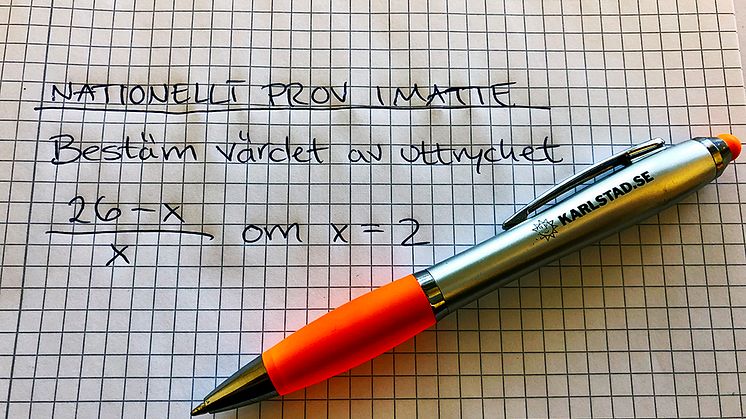 NATIONELLT PROV I MATTE
Bestäm värdet av uttrycket
26-x
x
om x = 2
KARLSTAD.SE